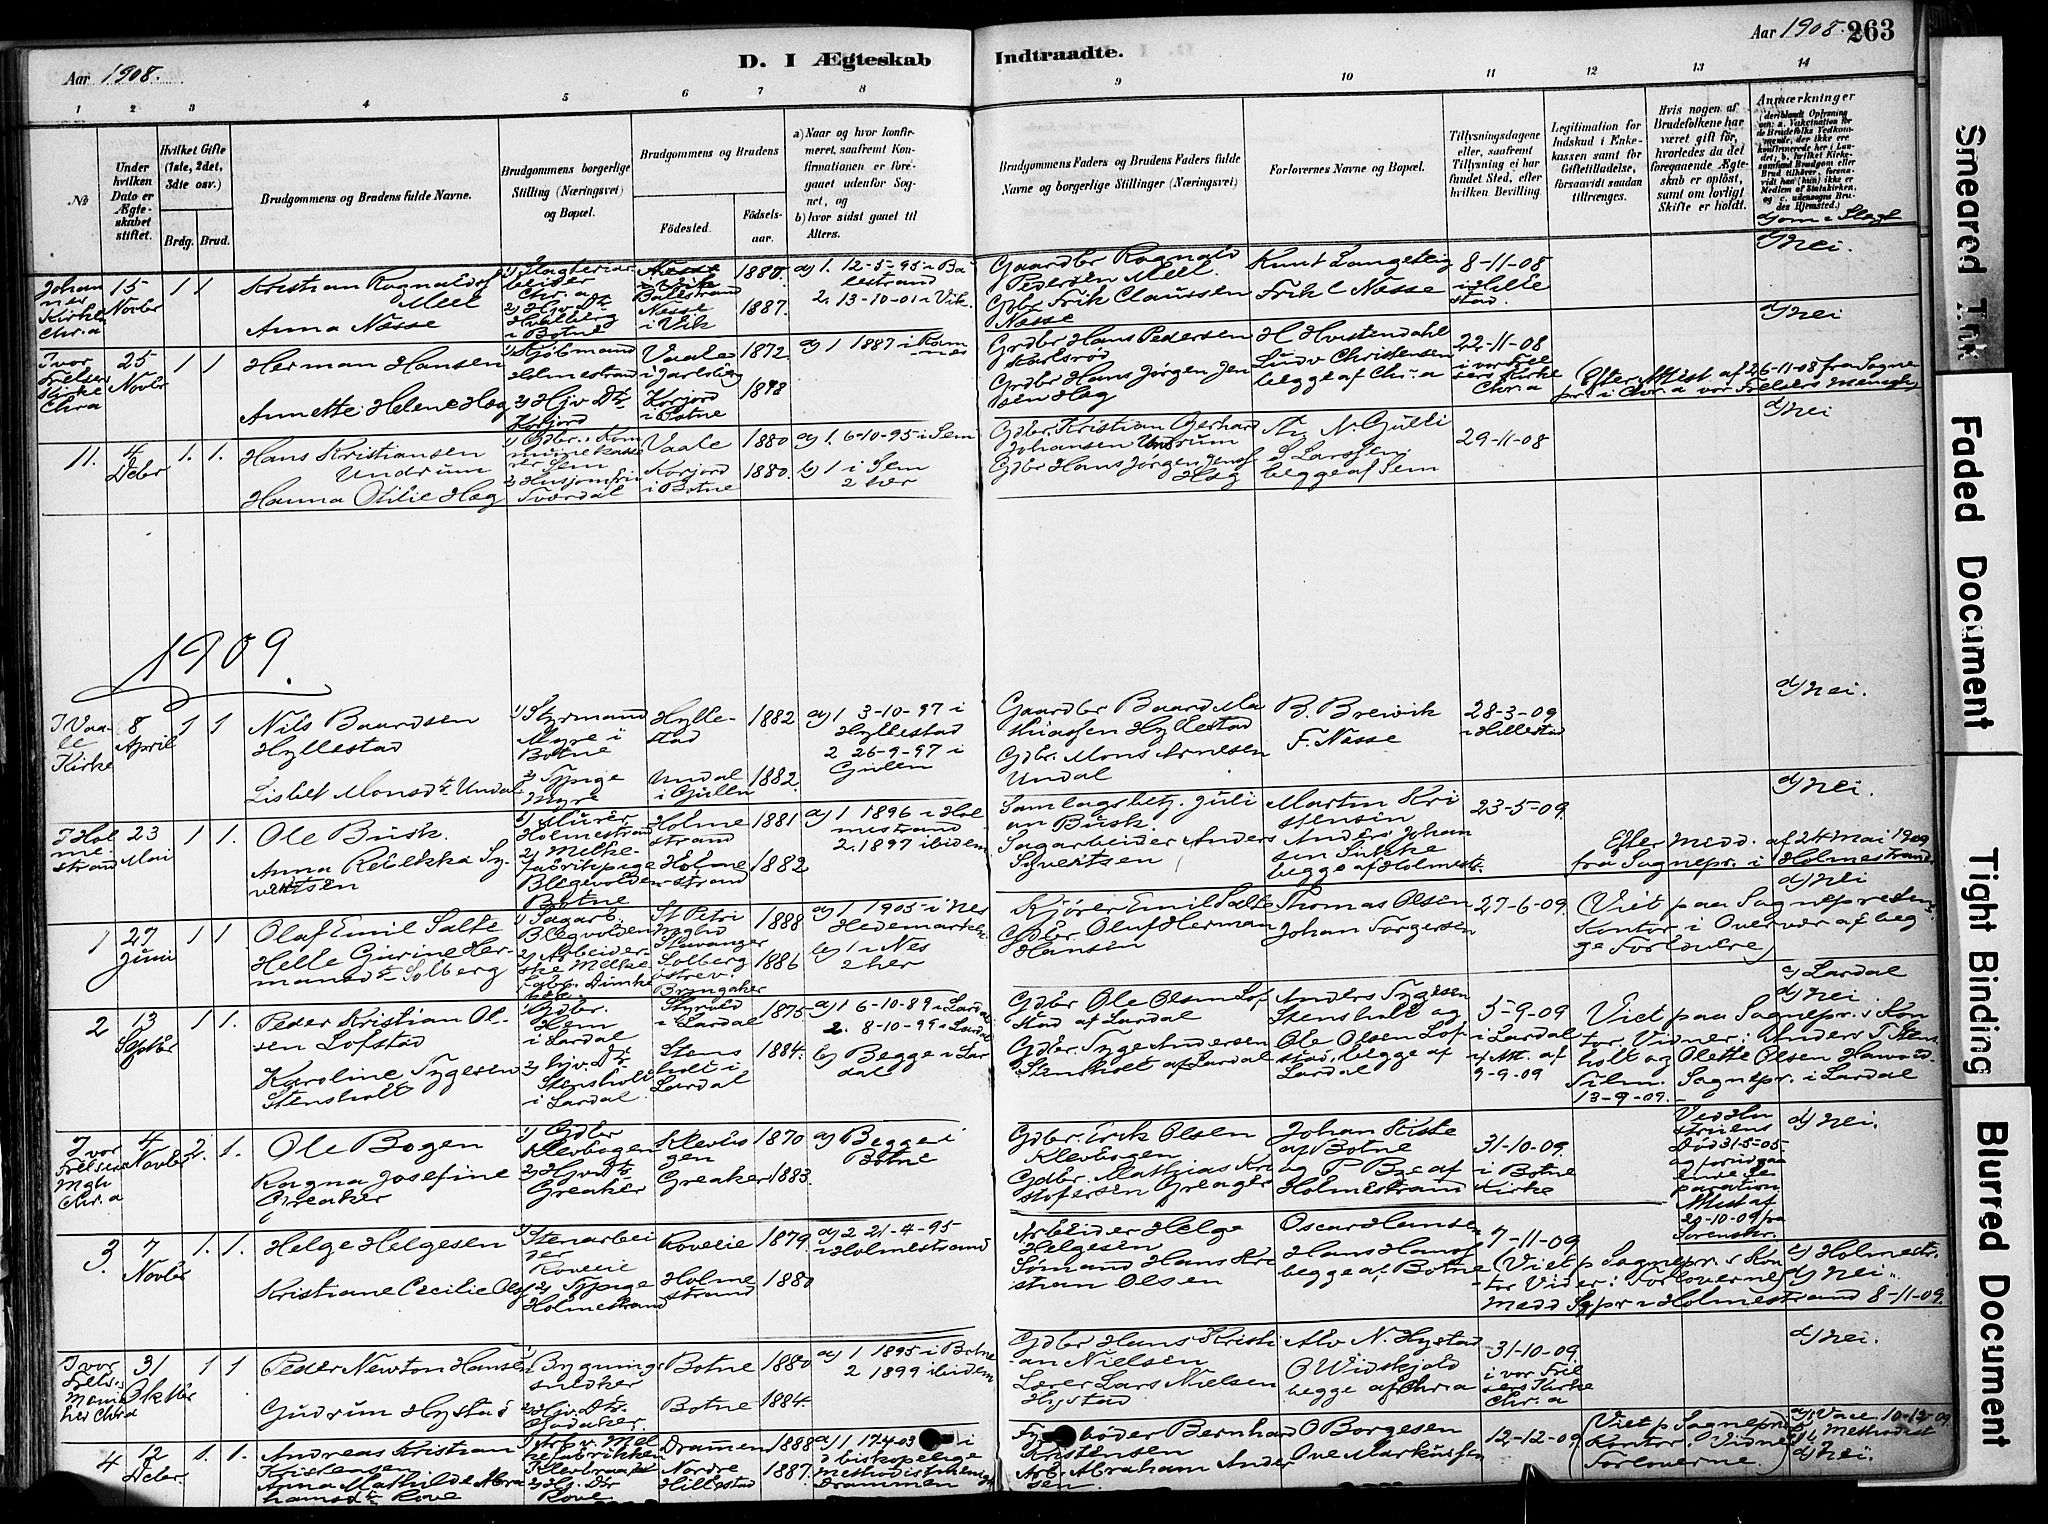 Aar 1908.
D. I Ægteskab Indtraadte.
Aar 1908. 263
1 2 3 4 5 6 7 8 9 10 11 12 13 14
No
Under hvilken Dato er Ægteskabet stiftet.
Hvilket Gifte (1ste, 2det, 3die osv.)
Brdg. Brud.
Brudgommens og Brudens fulde Navne.
Brudgommens borgerlige Stilling (Næringsvei) og Bopæl.
Brudgommens og Brudens
Fødested.
Fødselsaar.
a) Naar og hvor konfirmeret, saafremt Konfirmationen er foregaaet udenfor Sognet, og
b) hvor sidst gaaet til Alters.
Brudgommens Faders og Brudens Faders fulde Navne og borgerlige Stillinger (Næringsvei)
Forlovernes Navne og Bopæl.
Tillysningsdagene eller, saafremt Tillysning ei har fundet Sted, efter hvilken Bevilling.
Legitimation for Indskud i Enkekassen samt for Giftetilladelse, forsaavidt saadan tiltrænges.
Hvis nogen af Brudefolkene har været gift før, hvorledes da det foregaaende Ægteskab er opløst, samt om lovligt Skifte er holdt.
Anmærkninger
Johannes Kirke Chr.a
15 Novbr
1 1
Kristian Ragnalds. Meel
Anna Næsse
Balestrand
Næsse i Vik
1880.
1887.
a) 1. 12-5-95 i Balestrand
2. 13-10-01 i Vik.
Gaardbr Ragnald Pedersen Meel.
Gdbr. Erik Claussen Næsse
Knut Langeteig
Erik C Næsse
8-11-08 i Hillestad.
d) nei.
I vor Frelsers Kirke Chr.a
25 Novbr
1 1
Herman Hansen
Annette Helene Hag
1) Kjøbmand Holmestrand
2) Hjv. Dtr. Korjord
Vaale i Jarlsberg
Korjord i Botne
1872.
a) 1 1887 i Ramnes
Grdbr Hans Pedersen
Grdbr Hans Jørgen Jensen Hag
H Hvistendahl
Ludv Christensen
begge af Chr.a
22-11-08 i vor Frelsers Kirke Chr.a
(Efter Attest af 26-11-08 fra Sognepr. i Chr.a vor Frelsers Menigh.)
d) nei
11.
4 Debr
1. 1.
Hans Kristiansen Undrum
Hanna Otilie Hag
Vaale
Korjord i Botne
1880
1880.
a) 1. 6-10-95 i Sem
b) 1 i Sem
2 her
Gdbr. Kristian Gerhard Johansen Undrum
Gdbr Hans Jørgen Jens. Hag
S Larssen
begge af Sem
29-11-08
d) nei
1909.
I Vaale Kirke
8 April
1 1
Nils Baardsen Hyllestad
Lisbet Monsdtr. Undal
1) Styrmand Myre i Botne
2) Tjpige Myre
Hyllestad
Undal i Gulen
1882
1882.
a) 1 3-10-97 i Hyllestad
2 26-9-97 i Gulen
Gaardbr Baard Mathiasen Hyllestad
Gdbr. Mons Arnesen Undal
B. Breivik
F. Næsse
28-3-09 i Hillestad
d) nei.
I Holmestrand
23 Mai
1 1.
Ole Busk.
Anna Rebekka Syvertsen
1) Murer Holmestrand
2) Melkefabrikpige Blegevolden Botne
Holmestrand
Holmestrand
1881
1882
a) 1 1896 i Holmestrand
2. 1897 ibidem
Samlagsbet. Julian Busk.
Sagarbeider Anders Syvertsen
Martin Kristensen
Anders Johansen Sukke
begge af Holmestr.
23-5-09.
Efter Medd. af 24 Mai 1909 fra Sognepr. i Holmestrand
d) nei.
1
27 Juni
1 1
Olaf Emil Salte
Helle Gurine Hermansdtr. Solberg
1) Sagarb. Blegvolden
St Petri Mghd Stavanger
Solberg
1888
1886
a) 1 1905 i Nes Hedemarken
b) 1 i Nes
2 her
Kjører Emil Salte
Gdbr. Oluf Herman Hansen
Thomas Olsen
Johan Torgersen
27-6-09.
(Viet paa Sognepræstens Kontor i Overvær af begge Forlovere)
d) nei
2
13 Septbr
1 1.
Peder Kristian Olsen Lofstad
Karoline Tygesen Stensholt
1) Gdbr. Hem i Lardal
2) hjv. Dtr. Stensholt i Lardal.
Styrvold i Lardal
Stensholt i Lardal
1875
1884.
a) 1 6-10-89 i Lardal
2. 8-10-99 i Lardal
b) Begge i Lardal
Gdbr Ole Olsen Lofstad af Lardal
Gdbr. Tyge Andersen Stensholt af Lardal
Anders Tygesen Stensholt og
Ole Olsen Lofstad, begge af Lardal
5-9-09 i Lardal if. Att. af 9-9-09
Viet paa Sognepr.s Kontor. Vidner: Anders T. Stensholt og Olette Olsen
Tilm. Sognepr. i Lardal 13-9-09.
c) Lardal
d) nei.
I vor Frelsers Mgh Chr.a
4 Novbr
2. 1.
Ole Bogen
Ragna Josefine Greaker
1) Gdbr Klevbogen
2) Hjv. Dtr. Greaker
Klevbogen
Greaker
1870
1883.
a) Begge i Botne
Gdbr. Erik Olsen Klevbogen
Gdbr. Mathias Kristofersen Greager
Johan Kiste af Botne
og P Bye af Holmestrand
31-10-09. i Botne Kirke
Ved Hustruens Død 31-5-05 og forudgaaende Separation Attest af 29-10-09 fra Sorenskr.
d) nei.
3.
7 Novbr
1. 1.
Helge Helgesen
Kristiane Cecilie Olsf.
1) Stenarbeider Roveie
2) Tjpige Holmestrand
Roveie
Holmestrand
1879.
1880
a) 2 21-4-95 i Holmestrand
Arbeider Helge Helgesen
Sømand Hans Kristian Olsen
Oscar Hansen
Hans Hans.
begge af Botne
7-11-09
(Viet p Sognepr.s Kontor Vider: Forloverne)
Medd Sgpr i Holmestrand 8-11-09.
c) Holmestr.
d) nei.
I vor Frels.s Menighed Chr.a
31 Oktbr
1 1
Peder Newton Hansen
Gudrun Hystad
1) Bygningssnedker
Botne
Botne
1880
1884.
a) 1 1895 i Botne
2 1899 ibidem
Gdbr Hans Kristian Nielsen
Lærer Lars Nielsen Hystad
Alv N. Hystad
O Widskjold
begge af Chr.a
31-10-09. i vor Frelsers Kirke Chr.a
d) nei.
4
12 Debr.
1. 1.
Andreas Kristian Kristensen
Anna Mathilde Abrahamsdtr. Rove
Drammen
Nordre Hillestad
1888
1887.
a) 1 17-4-03 i d biskopelige Methodistmenigh. Drammen
Fyrbøder Bernhard Kristensen
Arb. Abraham Andersen.
O Borgesen
Ove Markussen
12-12-09.
(Viet p Sognepr.s Kontor. Vidner Forloverne)
d) nei.
Smeared Ink
Faded Document
Tight Binding
Blurred Document